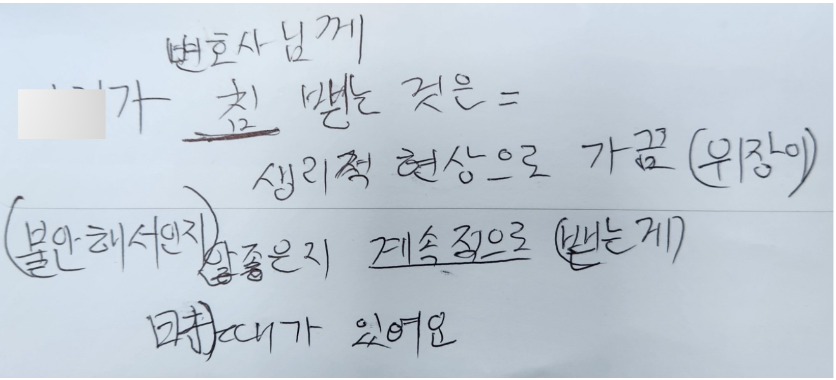 변호사님께
가 침 뱉는 것은 =
생리적 현상으로 가끔 (위장이)
(불안해서인지) 안좋은지 계속적으로 (뱉는게)
때가 있어요